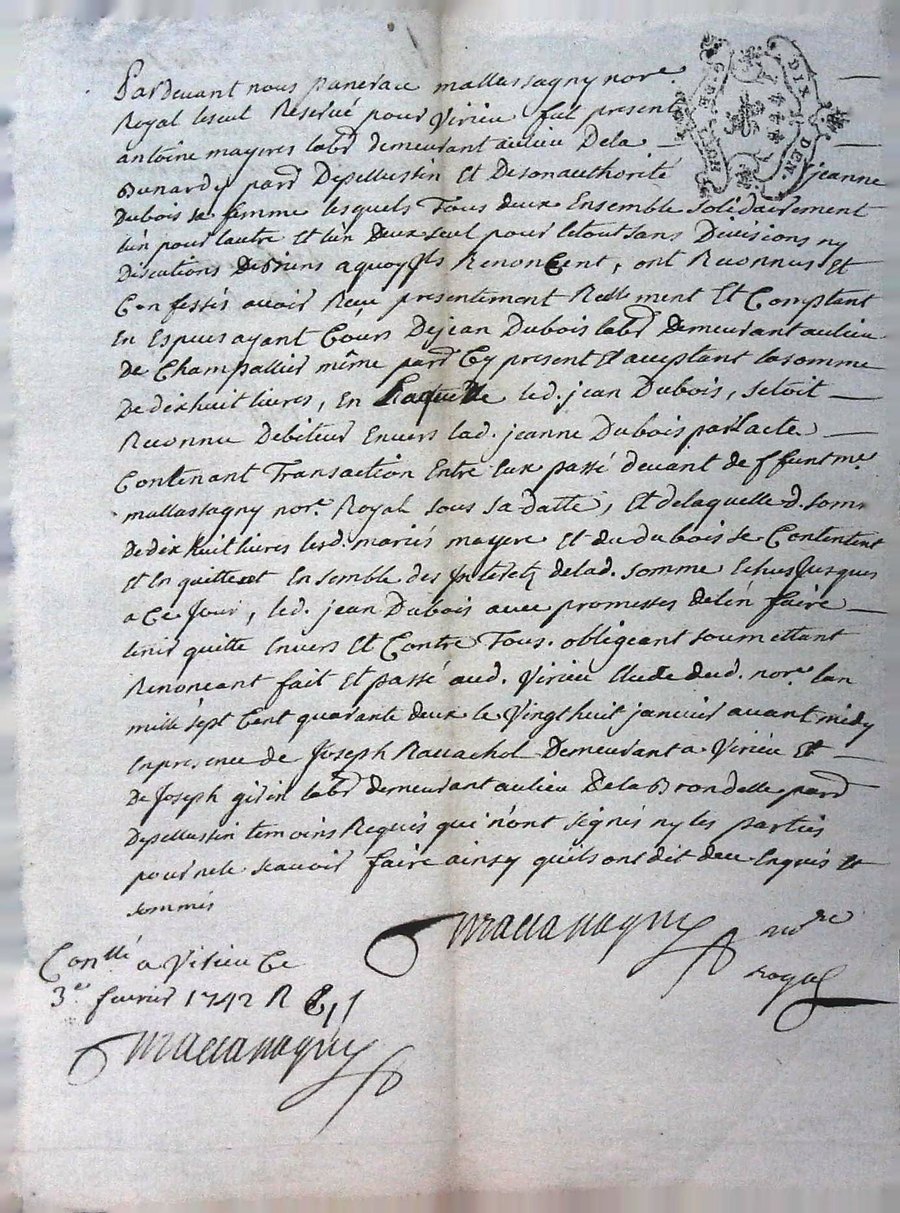 Pardevant nous pancrace mallassagny nore.
Royal Reservé pour Virieu fut present
antoine mayere labr demeurant au lieu Dela
Bunardy parr Depellussin Et De son authorité jeanne
Dubois sa femme lesquels Tous deux Ensemble solidairement
lun pour lautre et lun Deux seul pour le tout sans Divisions ny
Discutions De Biens a quoy Ils Renoncent, ont Reconnus Et
Confessés avoir Reçu presentement Reellement Et Comptant
En Especes ayant Cours De jean Dubois labr demeurant au lieu
De Champallier même parr Cy present Et acceptant la somme
De dix huit livres, En Laquelle led. jean Dubois, setoit
Reconnu Debiteur Envers lad. jeanne Dubois par lacte
Contenant Transaction Entre Eux passé devant deffunt me.
mallassagny nore. Royal sous sa datte, Et delaquelle d. somme
De dix huit livres lesd. mariés mayere Et du dubois se Contentent
Et En quittent Ensemble des Interetz delad. somme Echus Jusques
a Ce Jour, led. jean Dubois avec promesses delen faire
tenir quitte Envers Et Contre Tous. obligeant soumettant
Renonçant fait Et passé aud. Virieu Etude dud. nore. lan
mille sept Cent quarante deux le Vingt huit janvier avant midy
En presence de Joseph Ravachol Demeurant a Virieu Et
De Joseph girin labr demeurant au lieu De la Brondelle parr
Depellussin temoins Requis qui nont signés ny les parties
pour ne le scavoir faire ainsy quils ont dit deu Enquis Et
sommés
Mallassagny nore
royal
Conllé a Virieu Ce
3e fevrier 1742 R
Mallassagny
G. DE
DIX DEN.